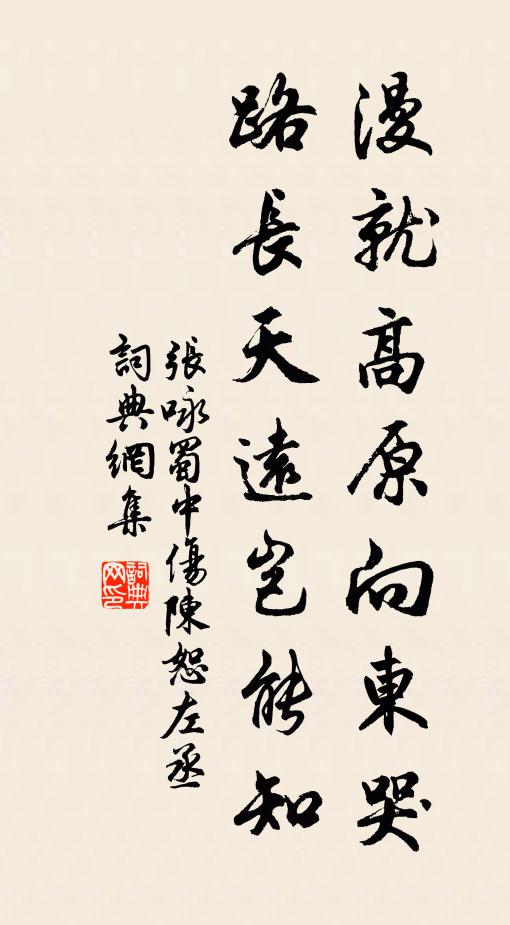 漫就高原向東哭
路長天遠豈能知
張咏蜀中傷陳恕左丞
詞典網集
詞典网印